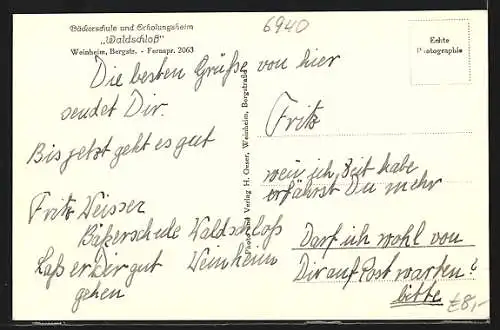 Bäckerschule und Erholungsheim
„Waldschloß"
Weinheim, Bergstr. - Fernspr. 2063
6940
Echte
Photographie
Die besten Grüße von hier
sendet Dir.
Bis jetzt geht es gut
Fritz Weisser
Bäkerschule Waldschloss
Weinheim
Lass er Dir gut
gehen
Photo und Verlag H. Oeser, Weinheim, Bergstraße
Fritz
wen ich Zeit habe
erfährst Du mehr
Darf ich wohl von
Dir auf Post warten?
bitte
£8,-